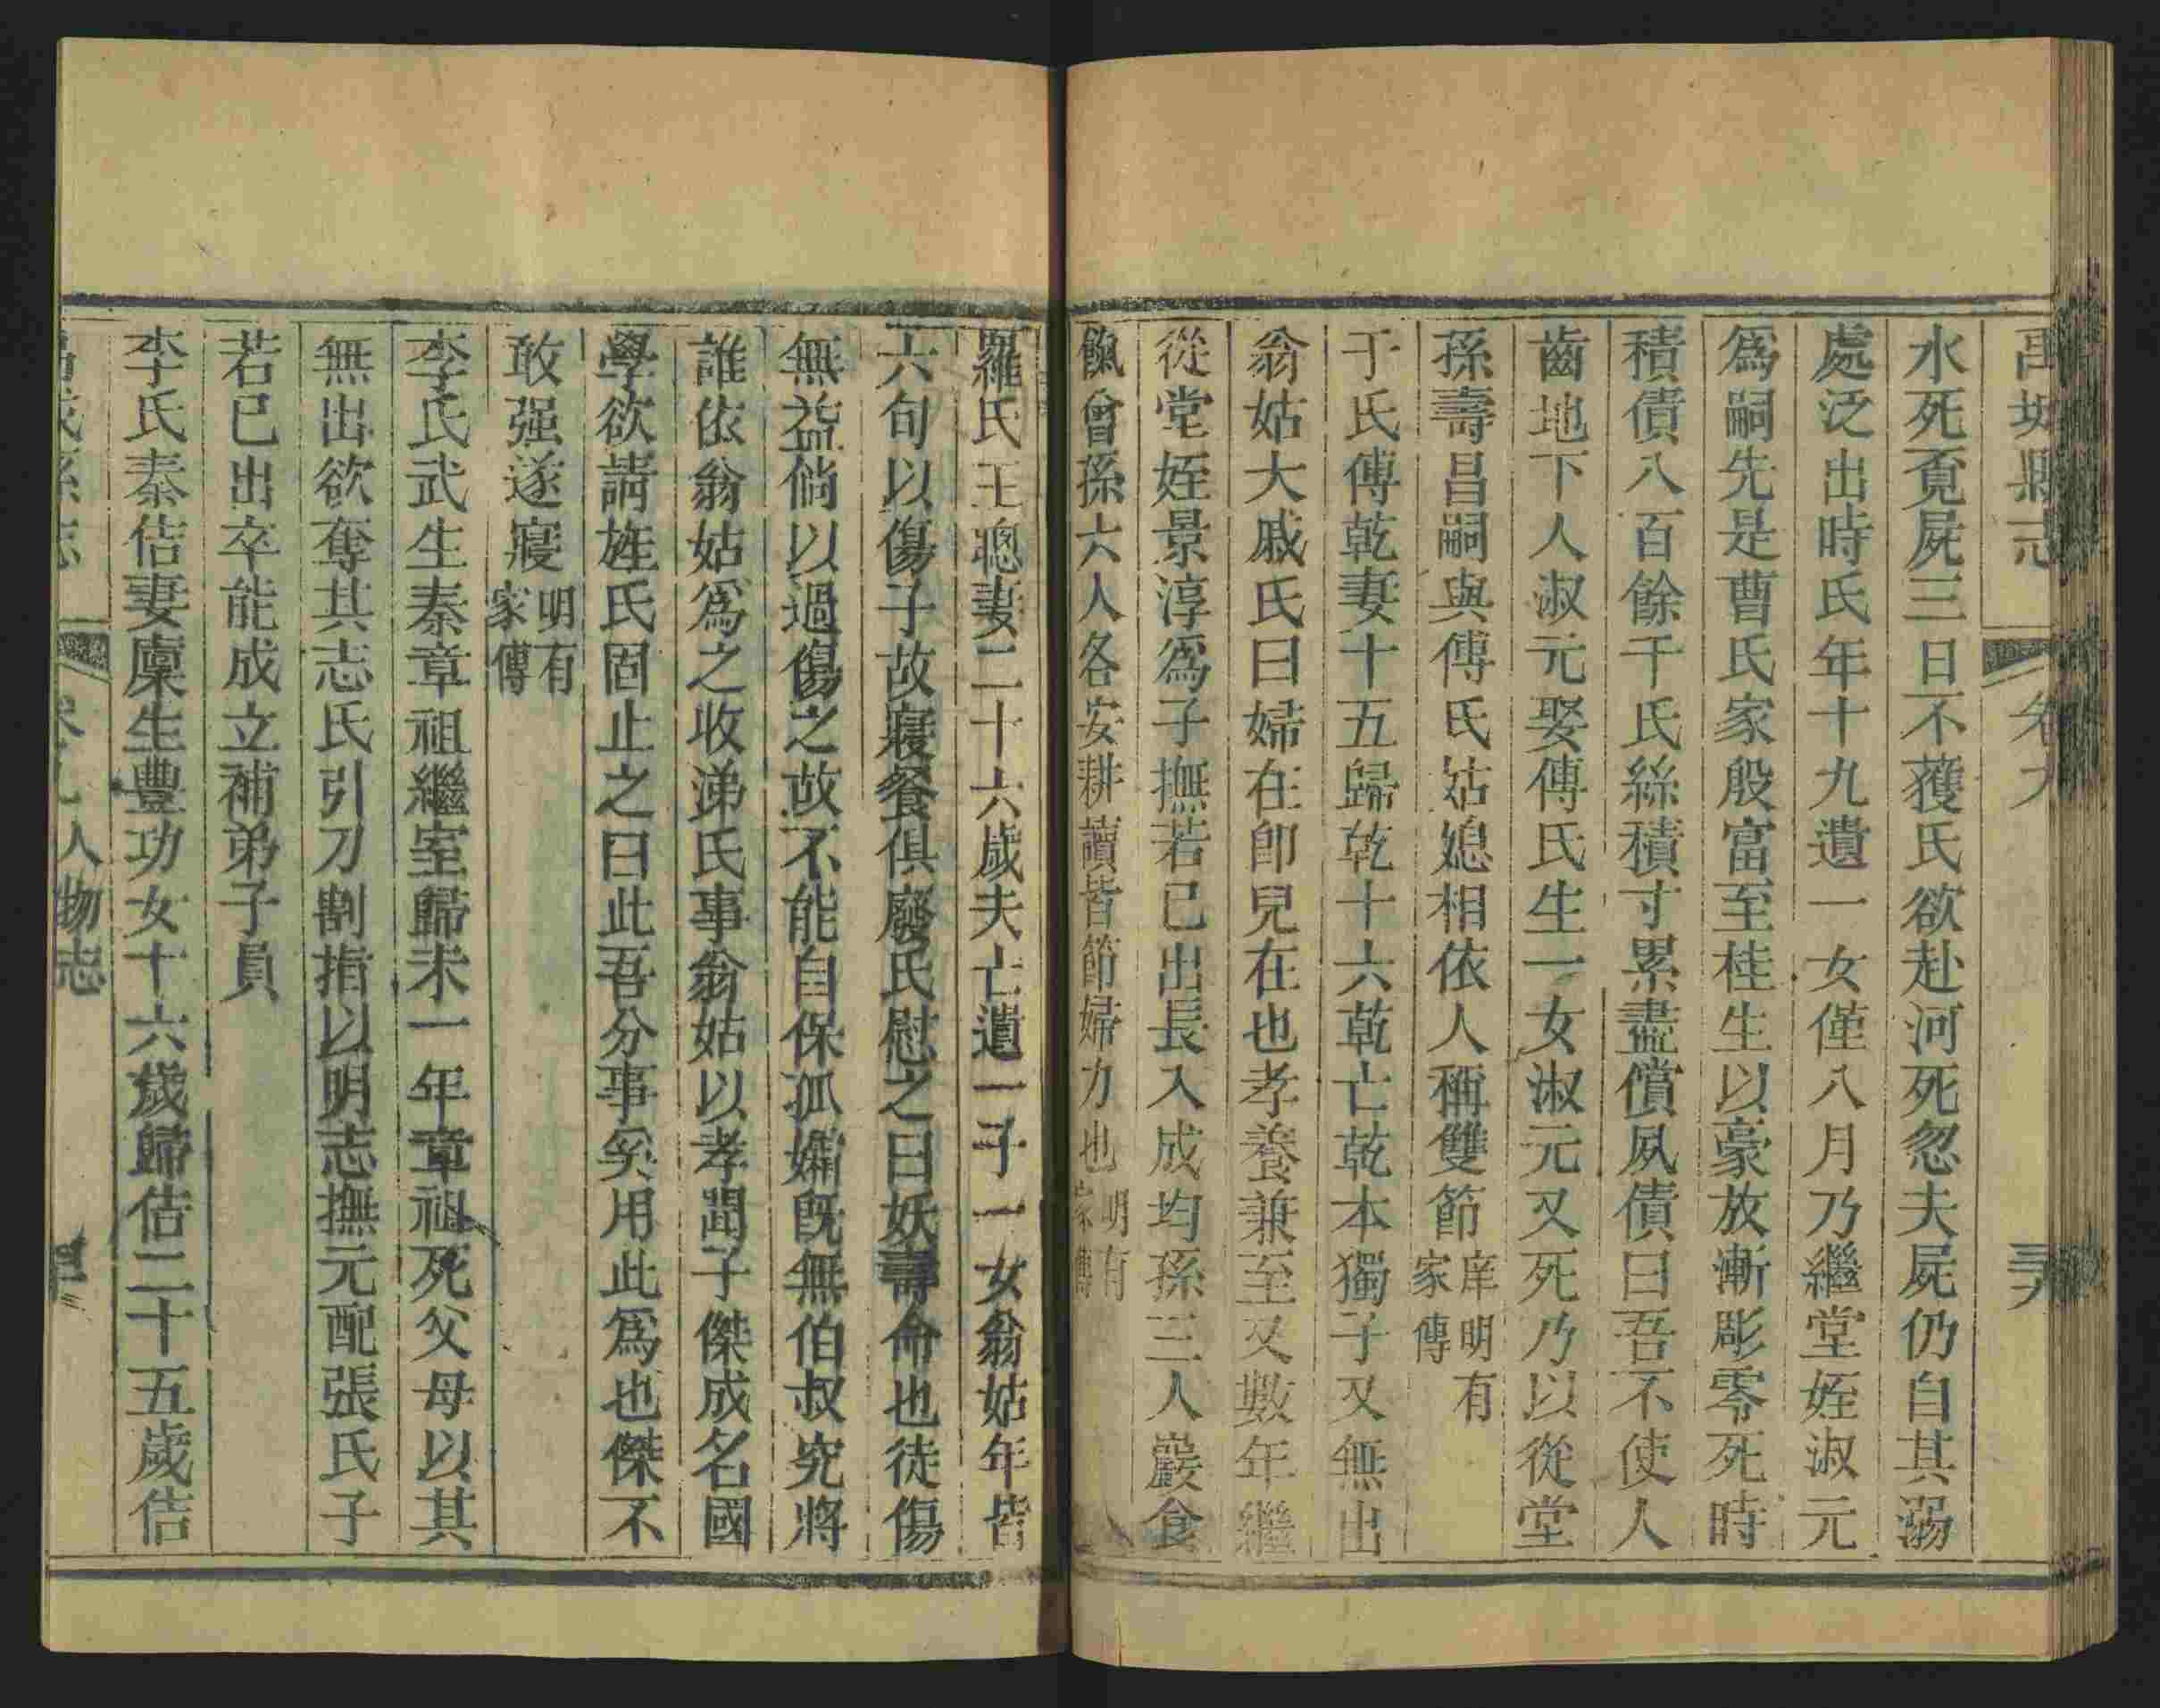 禹城縣志 卷九
水死覔屍三日不獲氏欲赴河死忽夫屍仍自其溺
處泛出時氏年十九遺一女僅八月乃繼堂姪淑元
爲嗣先是曹氏家殷富至桂生以豪放漸彫零死時
積債八百餘千氏絲積寸累盡償夙債曰吾不使人
齒地下人淑元娶傅氏生一女淑元又死乃以從堂
孫壽昌嗣與傅氏姑媳相依人稱雙節庠明有家傳
于氏傅乾妻十五歸乾十六乾亡乾本獨子又無出
翁姑大戚氏曰婦在卽兒在也孝養兼至又數年繼
從堂姪景淳爲子撫若已出長入成均孫三人巖食
餼曾孫六人各安耕讀皆節婦力也明有家傳
羅氏王聰妻二十六歲夫亡遺一子一女翁姑年皆
六旬以傷子故寢餐俱廢氏慰之曰妖壽命也徒傷
無益倘以過傷之故不能自保孤孀旣無伯叔究將
誰依翁姑爲之收涕氏事翁姑以孝聞子傑成名國
學欲請旌氏固止之曰此吾分事矣用此爲也傑不
敢强遂寢明有家傳
李氏武生秦章祖繼室歸未一年章祖死父母以其
無出欲奪其志氏引刀割指以明志撫元配張氏子
若已出卒能成立補弟子員
李氏秦佶妻廩生豐功女十六歲歸佶二十五歲佶
人物志